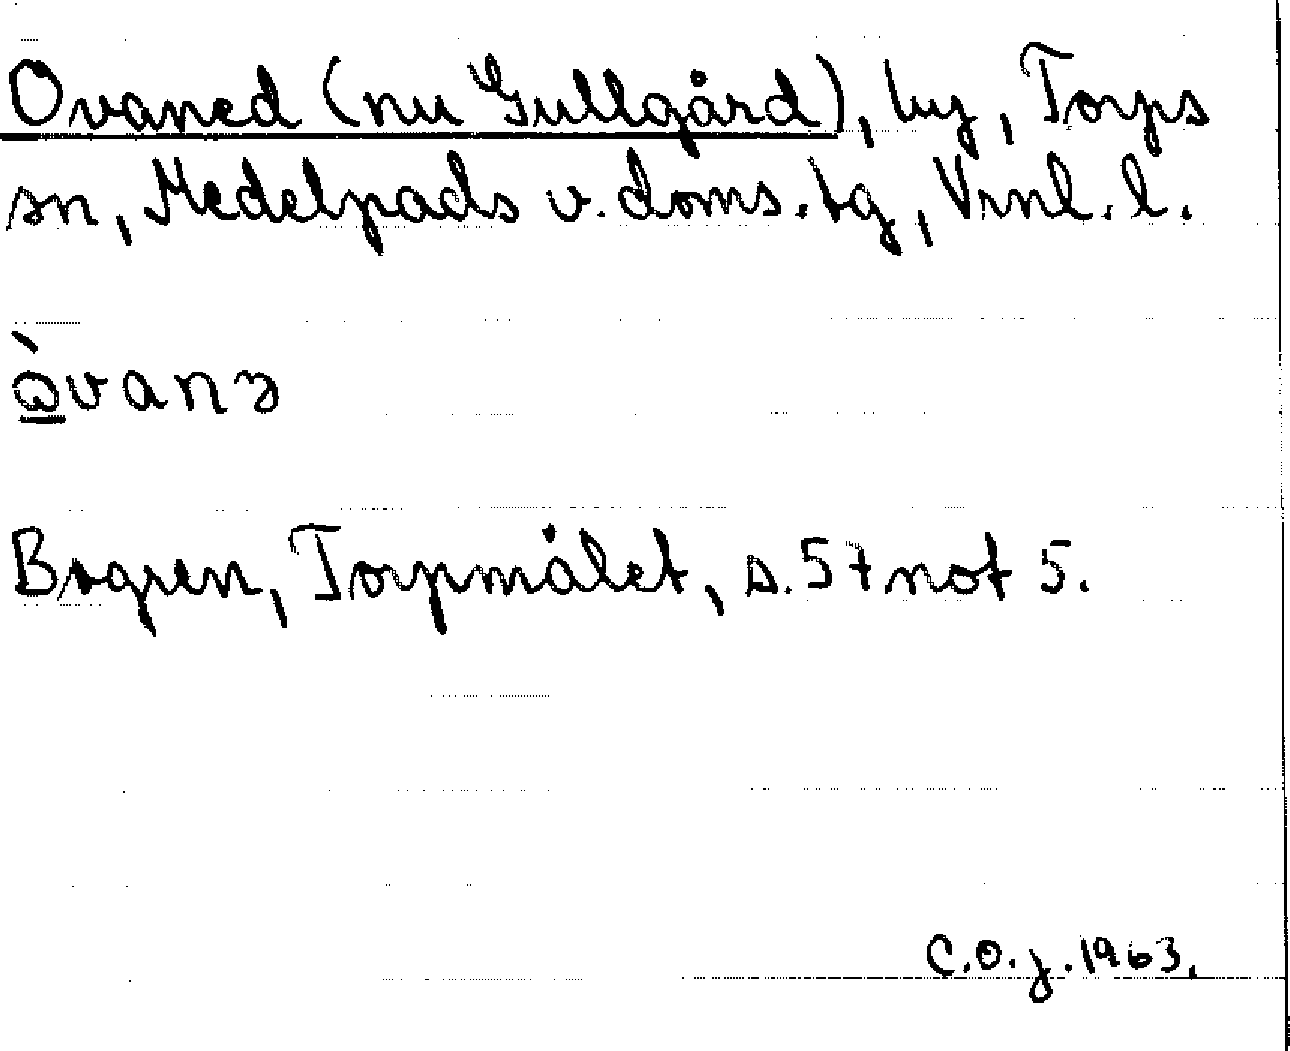 Ovaned (nu Gullgård), by, Torps
sn, Medelpads v. doms. tg, Vrnl. l.
ò̲vanɜ
Bogren, Torpmålet, s. 57 not 5.
C.O.J. 1963.